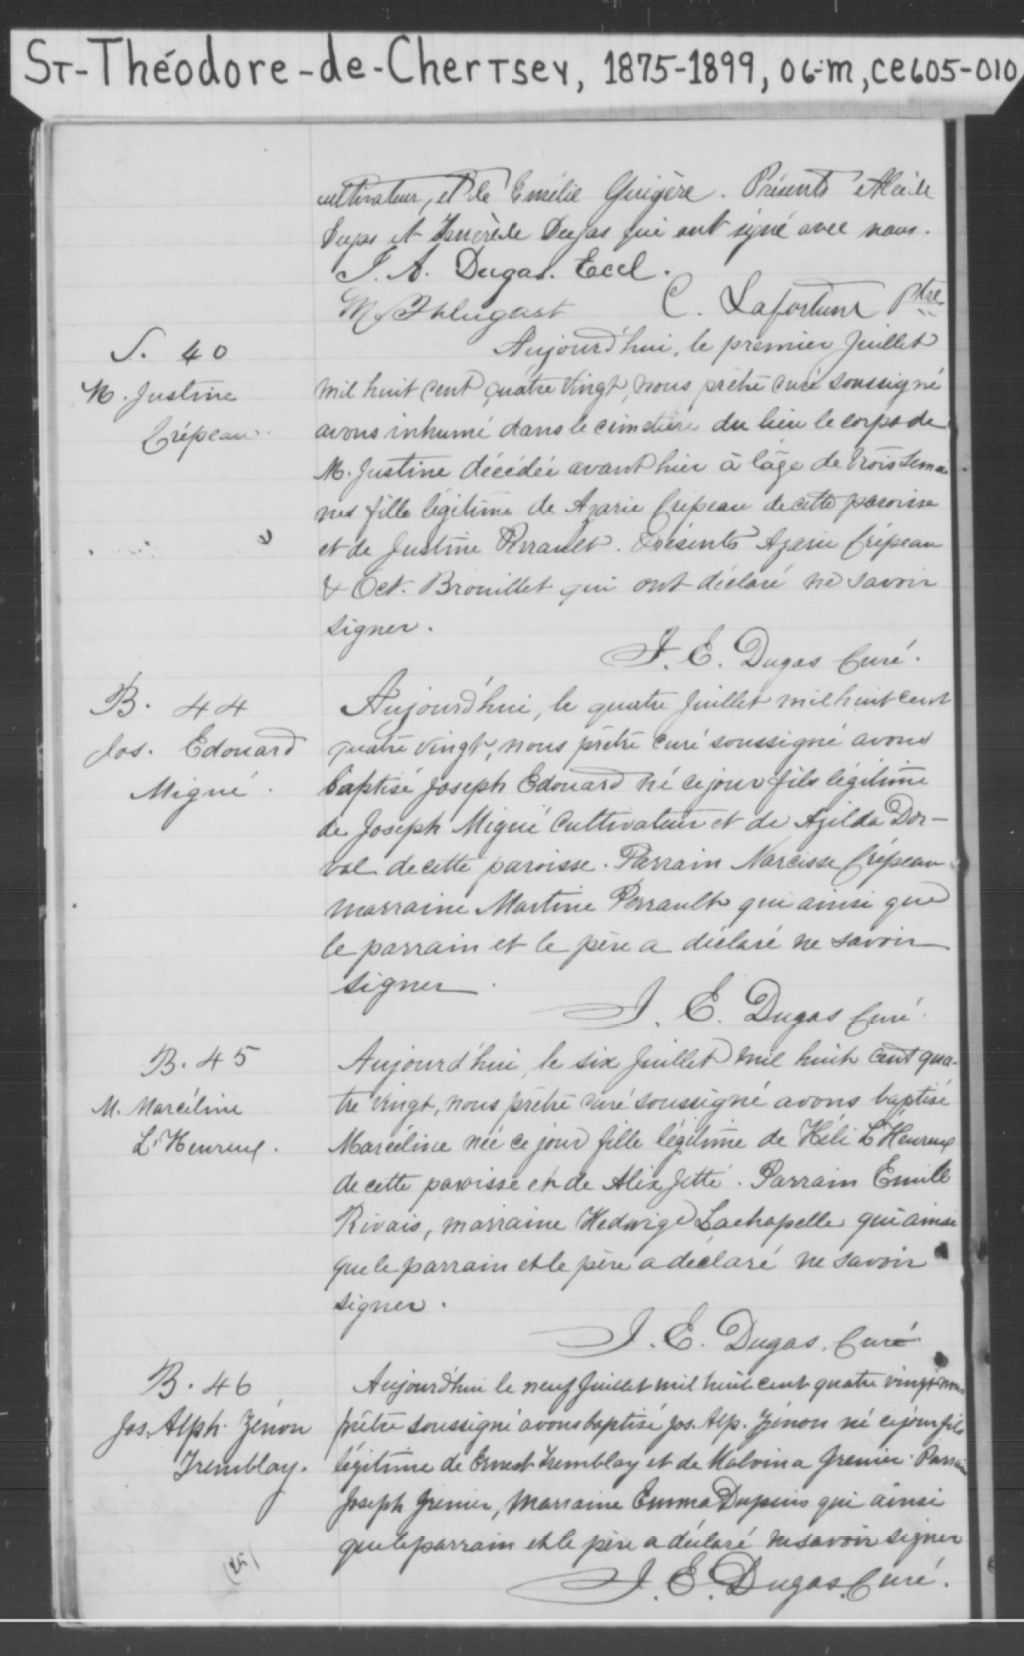 St-Théodore-de-Chertsey, 1875-1899, 06-m, ce605-010
cultivateur, et de Emélie Guigère. Présents
Dugas qui ont signé avec nous.
J. A. Dugas. Eccl.
C. Lafortune Ptre
S. 40
M. Justine
Crépeau
Aujourd'hui, le premier Juillet
mil huit cent quatre vingt, nous prêtre curé soussigné
avons inhumé dans le cimetière du lieu le corps de
M. Justine décédée avant hier à l'âge de trois semai
nes fille légitime de Azarie Crépeau de cette paroisse
et de Justine Perrault. Présents Azarie Crépeau
& Oct. Brouillet qui ont déclaré ne savoir
signer.
J. E. Dugas Curé.
B. 44
Jos. Edouard
Migué.
Aujourd'hui, le quatre Juillet mil huit cent
quatre vingt, nous prêtre curé soussigné avons
baptisé Joseph Edouard né ce jour fils légitime
de Joseph Migué cultivateur et de Azilda Dor-
val de cette paroisse. Parrain Narcisse Crépeau
marraine Martine Perrault qui ainsi que
le parrain et le père a déclaré ne savoir
signer.
J. E. Dugas Curé.
B. 45
M. Marcéline
L'Heureux.
Aujourd'hui, le six Juillet mil huit cent qua-
tre vingt, nous prêtre curé soussigné avons baptisé
Marcéline née ce jour fille légitime de Héli L'Heureux
de cette paroisse et de Alix Jetté. Parrain Emile
Rivais, marraine Hedwige Lachapelle qui ainsi
que le parrain et le père a déclaré ne savoir
signer.
J. E. Dugas. Curé
B. 46
Jos. Alph. Zénon
Tremblay.
Aujourd'hui le neuf Juillet mil huit cent quatre vingt nous
prêtre soussigné avons baptisé Jos. Alp. Zénon né ce jour fils
légitime de Ernest Tremblay et de Malvina Grenier. Parrain
Joseph Grenier, Marraine Emma Dupuis qui ainsi
que le parrain et le père a déclaré ne savoir signer
J. E. Dugas. Curé.